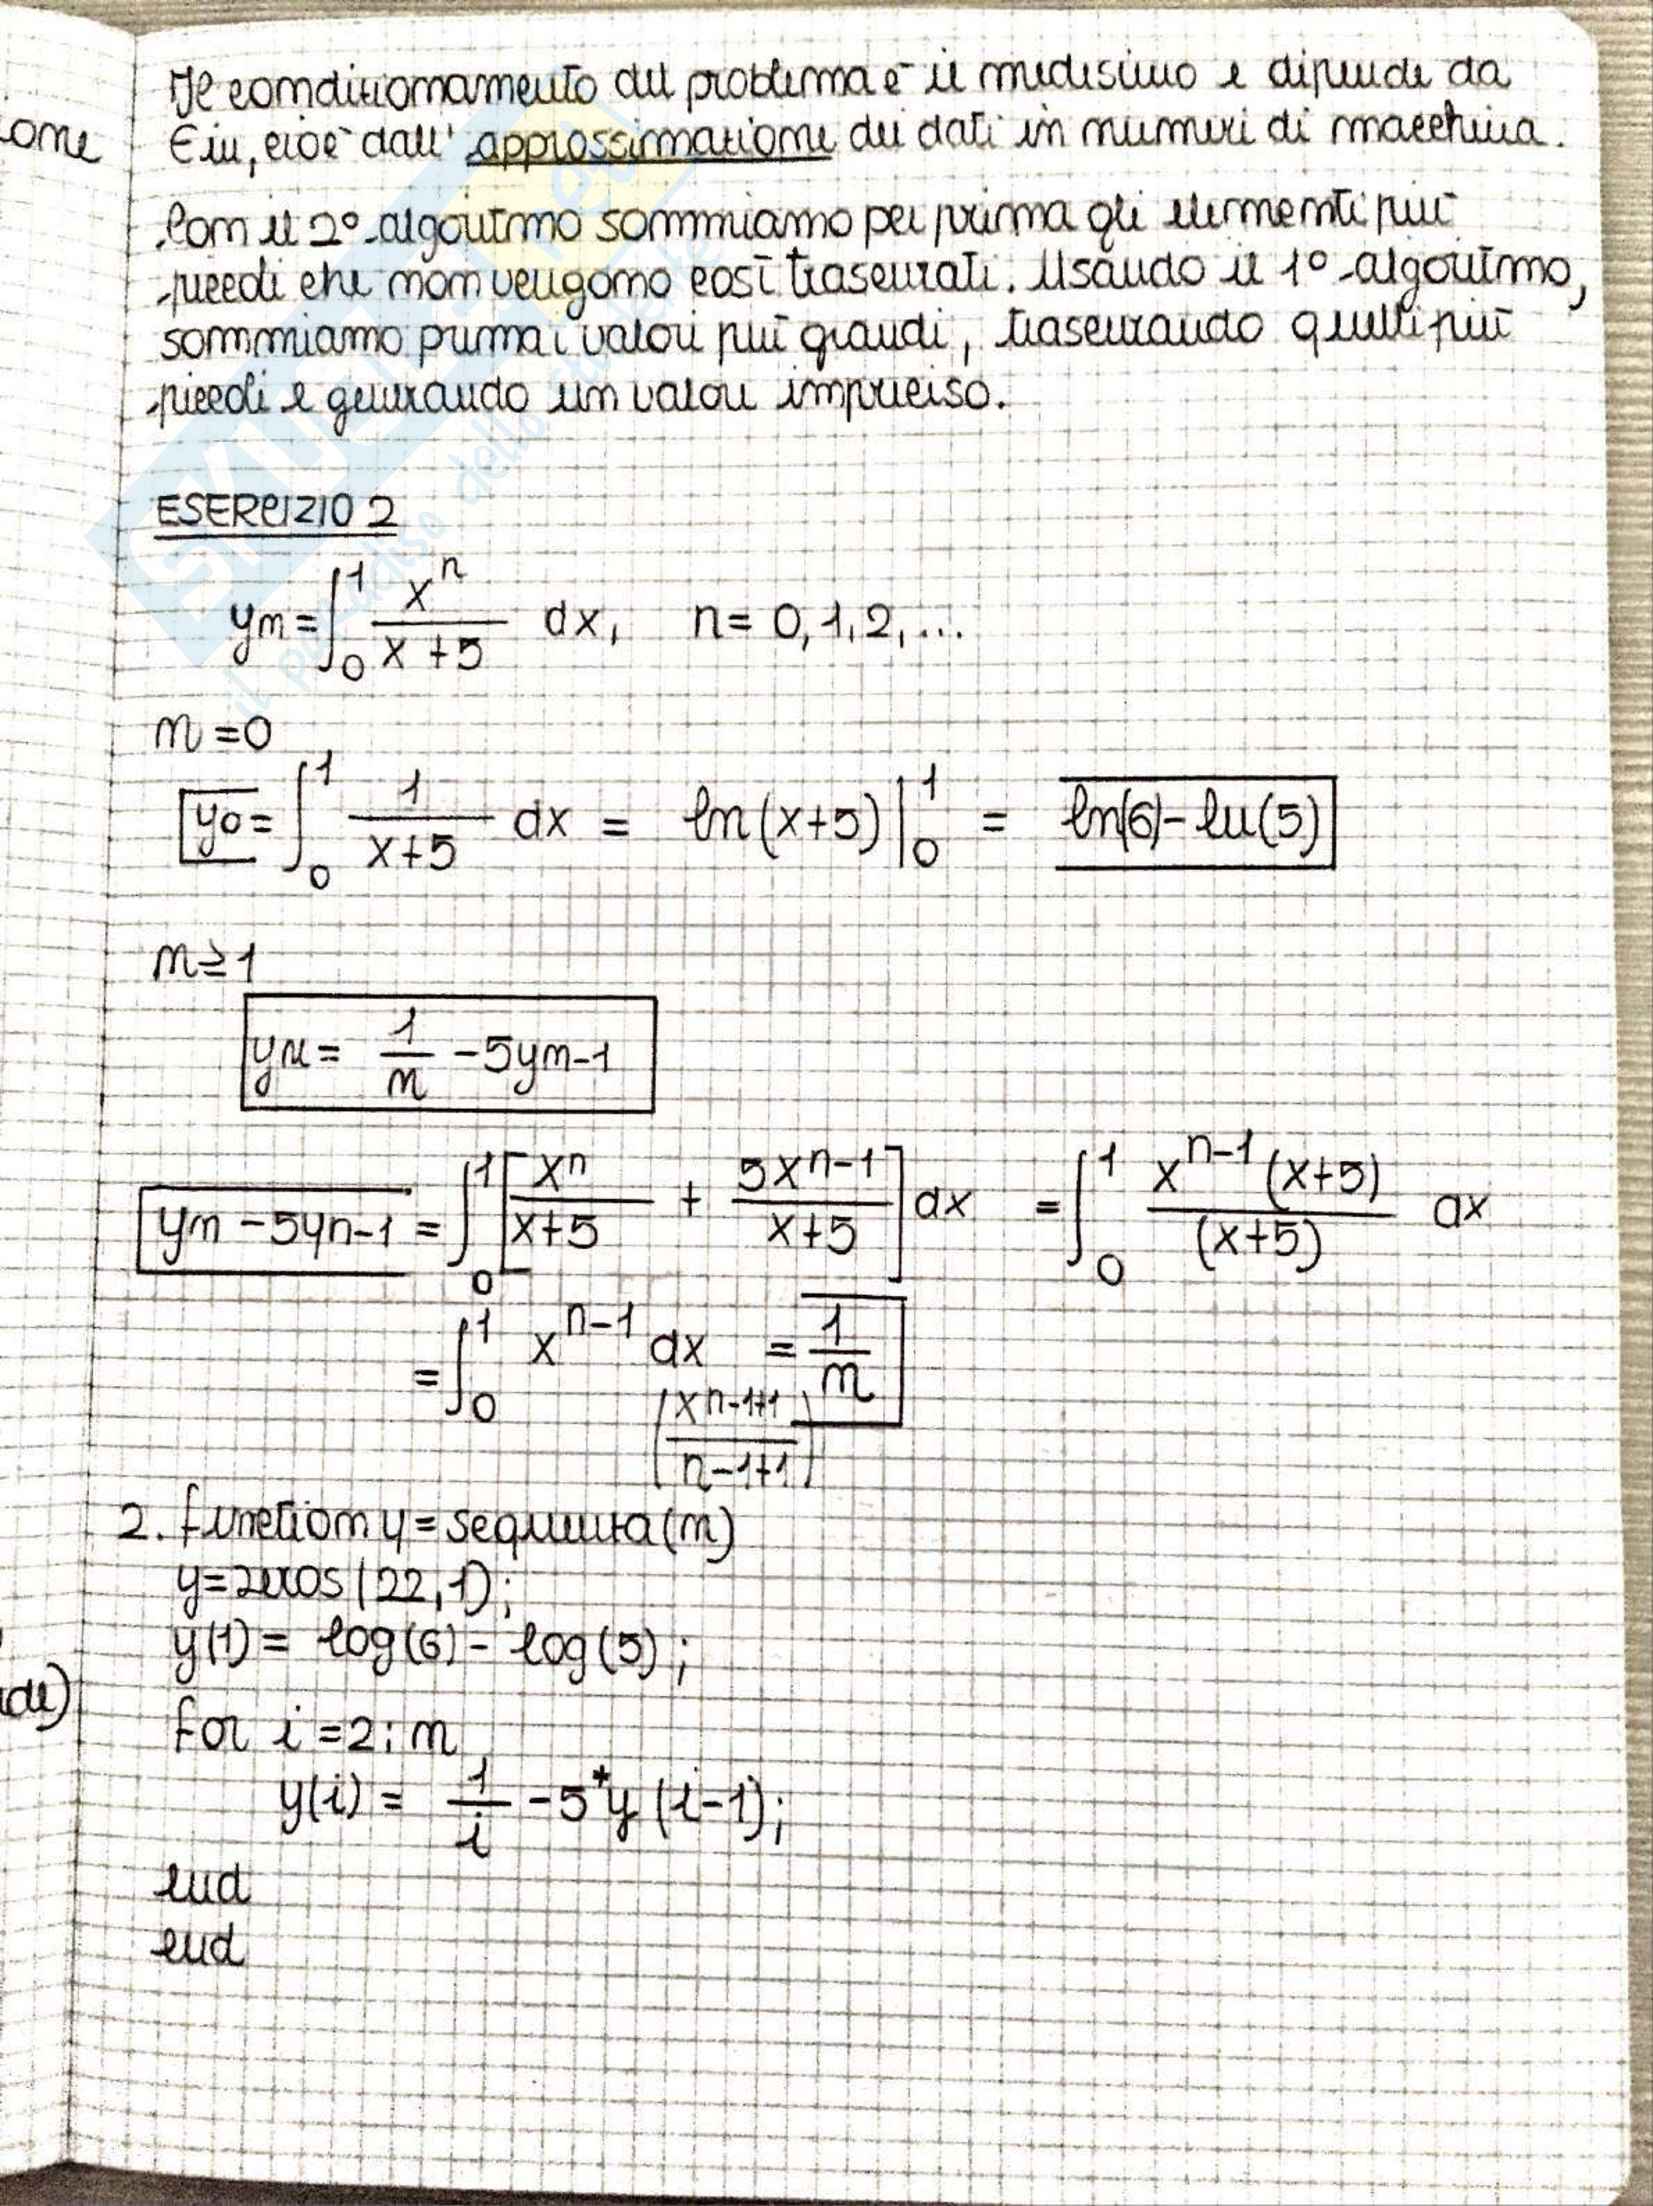 Il condizionamento del problema è il medesimo e dipende da
Ein, cioè dall' approssimazione dei dati in numeri di macchina.
Con il 2° algoritmo sommiamo per prima gli elementi più
piccoli che non vengono così trascurati. Usando il 1° algoritmo,
sommiamo prima i valori più grandi, trascurando quelli più
piccoli e generando un valore impreciso.
one
ESERCIZIO 2
yn = ∫₀¹ xⁿ/(x+5) dx, n = 0,1,2,...
n = 0
y0 = ∫₀¹ 1/(x+5) dx = ln(x+5)|₀¹ = ln(6) - ln(5)
n ≥ 1
yn = 1/n - 5yn-1
yn - 5yn-1 = ∫₀¹ [xⁿ/(x+5) + 5xⁿ⁻¹/(x+5)] dx = ∫₀¹ xⁿ⁻¹(x+5)/(x+5) dx
= ∫₀¹ xⁿ⁻¹ dx = 1/n
(xⁿ⁻¹⁺¹/(n-1+1))
2. function y = sequenza(n)
y=zeros(22,1);
y(1) = log(6) - log(5);
for i=2:n
y(i) = 1/i - 5*y(i-1);
end
end